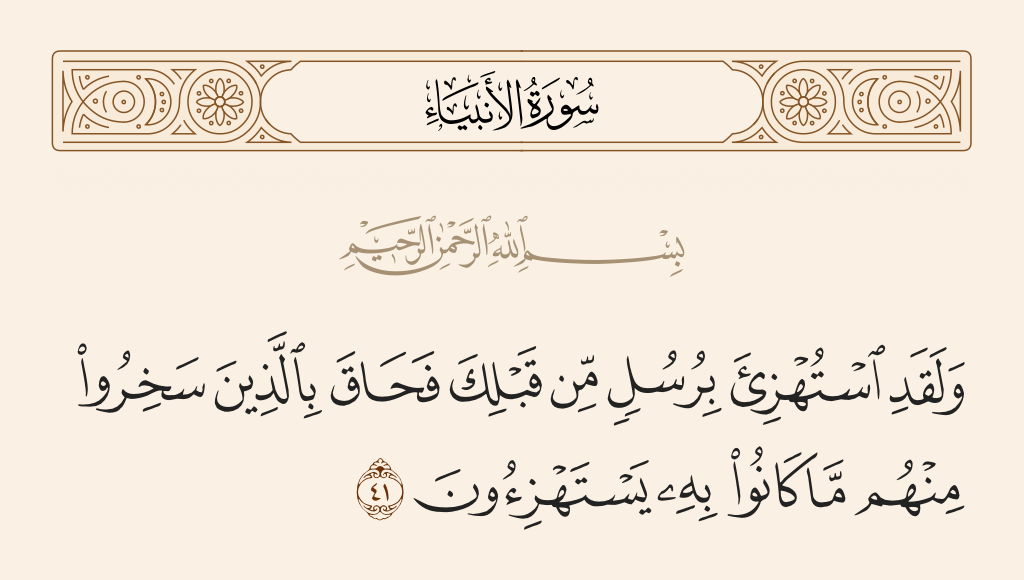 سُورَةُ الأَنبِيَاءِ
بِسْمِ ٱللَّهِ ٱلرَّحْمَٰنِ ٱلرَّحِيمِ
وَلَقَدِ ٱسْتُهْزِئَ بِرُسُلٍ مِّن قَبْلِكَ فَحَاقَ بِٱلَّذِينَ سَخِرُوا۟
مِنْهُم مَّا كَانُوا۟ بِهِۦ يَسْتَهْزِءُونَ ٤١